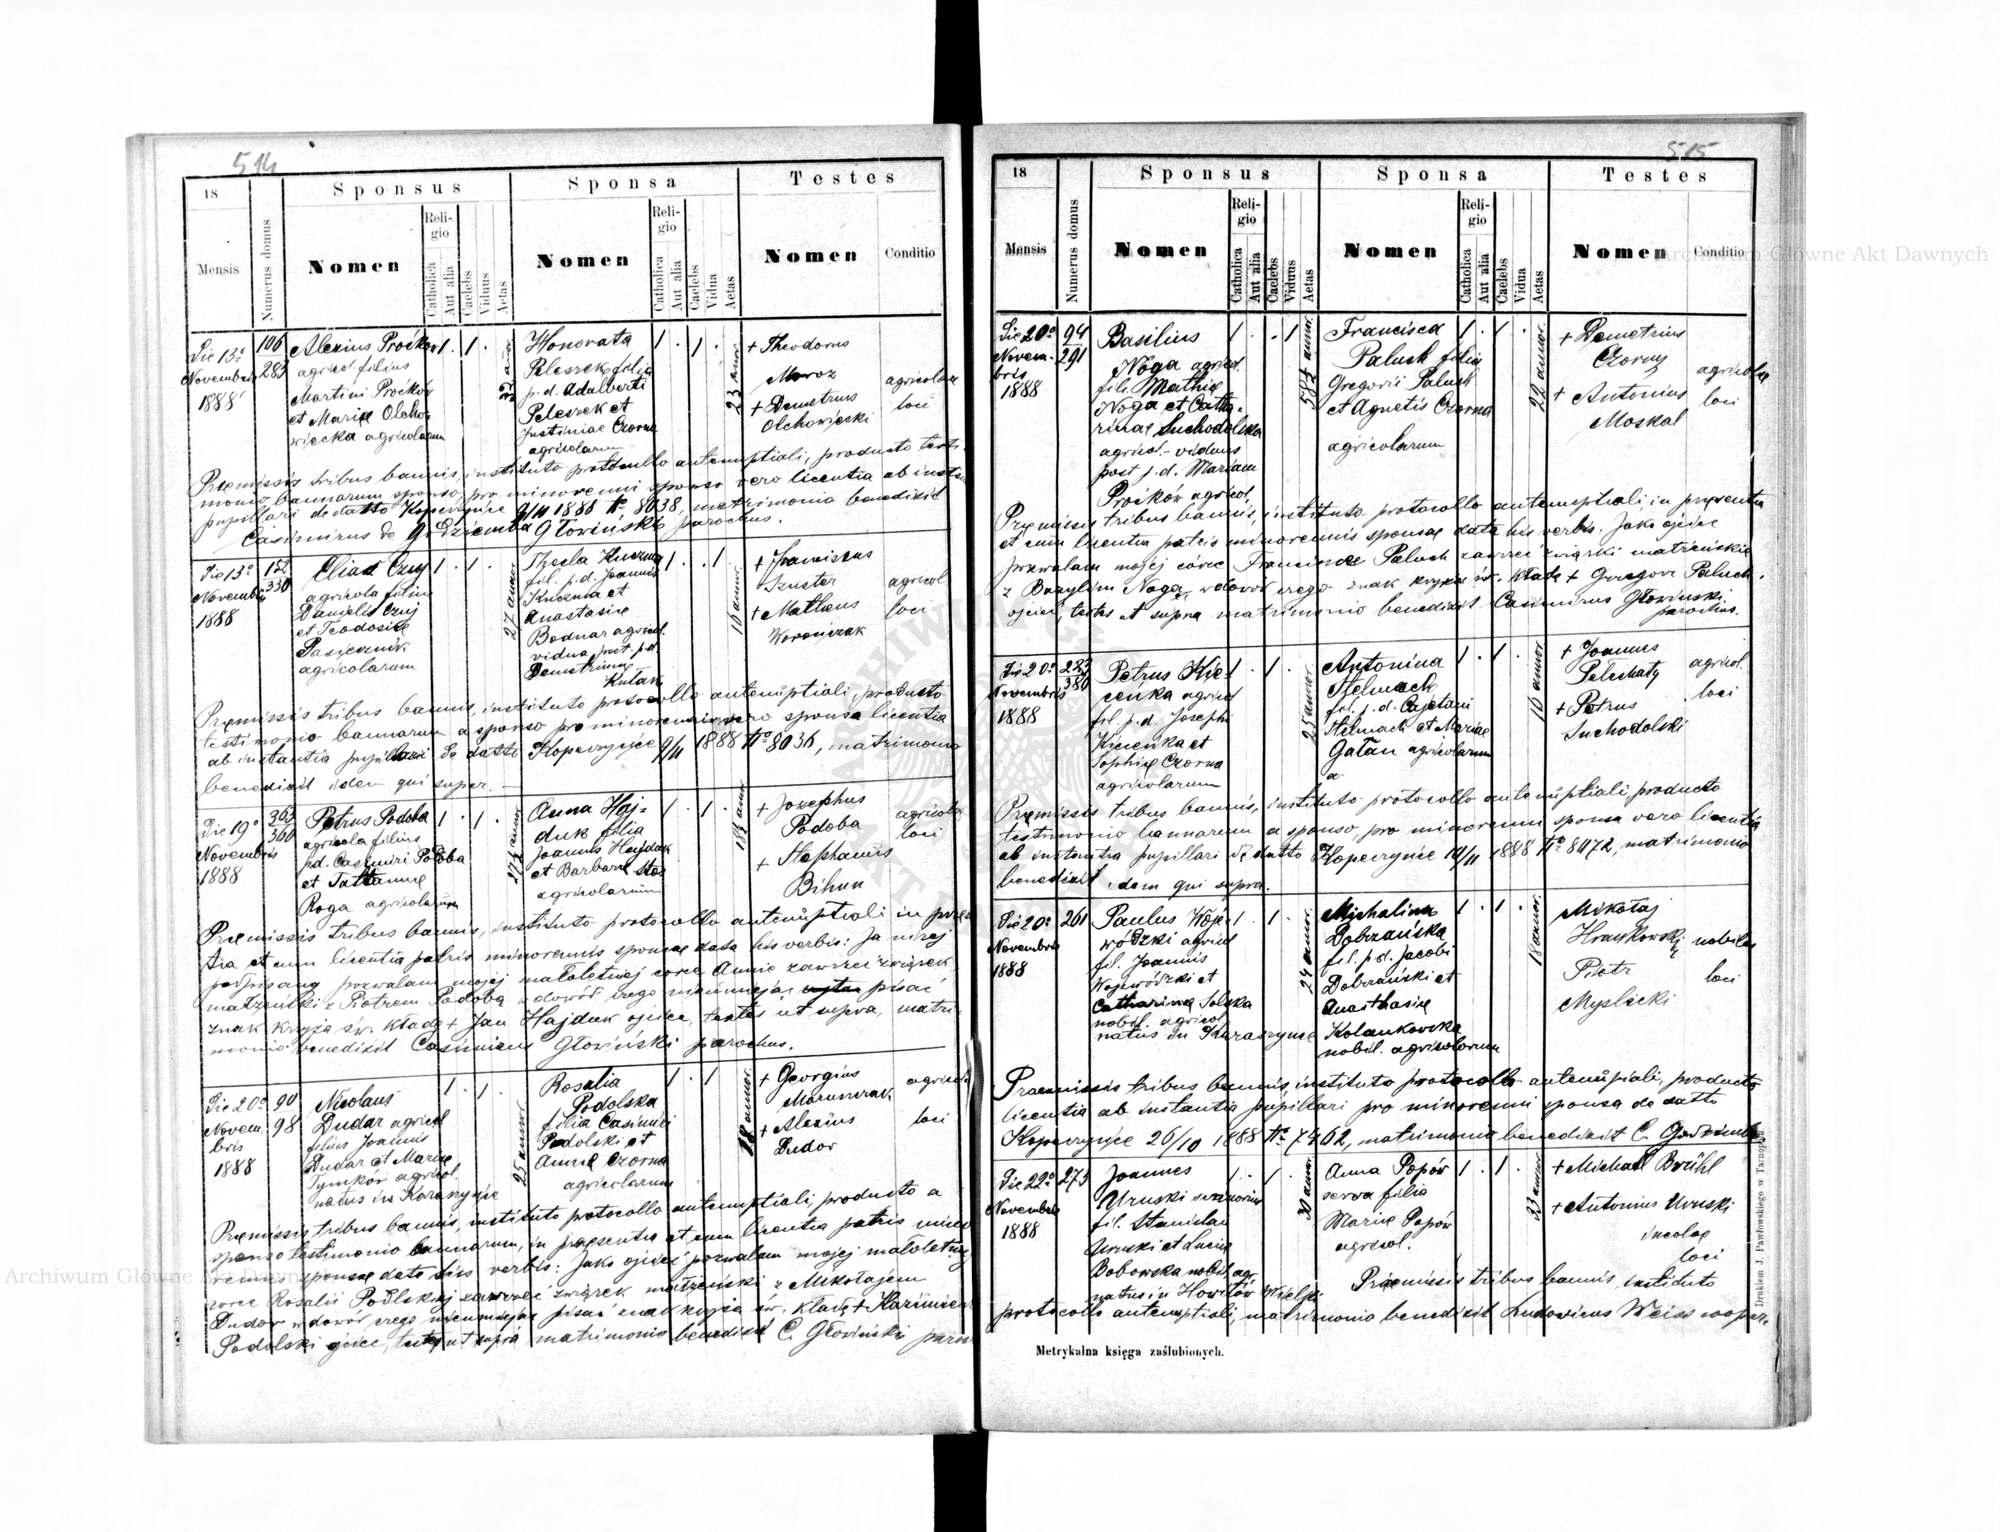 514
18
Sponsus
Sponsa
Testes
Mensis
Numerus domus
Nomen
Religio
Catholica
Aut alia
Caelebs
Viduus
Aetas
Nomen
Religio
Catholica
Aut alia
Caelebs
Vidua
Aetas
Nomen
Conditio
Die 13º
Novembris
1888
106
283
Alexius Prośków
agricol filius
Martini Prośków
et Mariæ Olcho
wiecka agricolarum
Honorata
Peleszek filia
p. d. Adalberti
Peleszek et
Justiniae Czorna
agricolarum
23 annor
+ Theodorus
Moroz
+ Demetrius
Olchowiecki
agricolae
loci
Præmissis tribus bannis, instituto protocollo antenuptiali, producto testi
monio bannarum sponso, pro minorenni sponso vero licentia ab insta
pupillari de datto Kopeczyńce 9/11 1888 Nº 8038, matrimonio benedixit
Casimirus de Godziemba Głowiński parochus.
Die 13º
Novembris
1888
152
330
Elias Czuj
agricola filius
Danielis Czuj
et Teodosiæ
Pasiecznik
agricolarum
27 annor
Thecla Kuczma
fil. p. d. Joannis
Kuczma et
Anastasiæ
Bodnar agricol.
vidua post. p. d.
Demetrium
Kułak
+ Franciscus
Szuster
+ Matheus
Worończak
agricol
loci
Præmissis tribus bannis, instituto protocollo antenuptiali, producto
testimonio bannarum a sponso pro minorenni vero sponsa licentia
ab instantia pupillari de datto Kopeczyńce 9/11 1888 Nº 8036, matrimonio
benedixit idem qui super.
Die 19º
Novembris
1888
363
360
Petrus Podoba
agricola filius
p.d. Casimiri Podoba
et Tattannæ
Roga agricolarum
Anna Haj-
duk filia
Joannis Hajduk
et Barbaræ Stos
agricolarum
+ Josephus
Podoba
+ Stephanus
Bihun
agricolae
loci
Præmissis tribus bannis, instituto protocollo antenuptiali in præsen
tia et cum licentia patris minorennis sponsæ data his verbis: Ja niżej
podpisany pozwalam mojej małoletniej córce Annie zawrzeć związek
matżeński z Piotrem Podobą w dowód czego nieumiejąc pisać
znak krzyża św. kładę + Jan Hajduk ojciec, testes ut supra, matri-
monio benedixit Casimirus Głowiński parochus.
Die 20º
Novem
bris
1888
90
98
Nicolaus
Dudar agricol
filius Joannis
Dudar et Mariæ
Tymków agricol.
natus in Karaszyńce
25 annor
Rosalia
Podolska
filia Casimiri
Podolski et
Annæ Czorna
agricolarum
18 annor
+ Georgius
Maruszczak
+ Alexius
Dudor
agricolae
loci
Præmissis tribus bannis, instituto protocollo antenuptiali, producto a
sponso testimonio bannarum, in præsentia et cum licentia patris mino
rennis sponsæ data his verbis: Jako ojciec pozwalam mojej małoletniej
córce Rosalii Podolskiej zawrzeć związek matżeński z Mikołajem
Dudor w dowód czego nieumiejąc pisać znak krzyża św. kładę + Kazimierz
Podolski ojciec, testes ut supra matrimonio benedixit C. Głowiński paroch
515
18
Sponsus
Sponsa
Testes
Mensis
Numerus domus
Nomen
Religio
Catholica
Aut alia
Caelebs
Viduus
Aetas
Nomen
Religio
Catholica
Aut alia
Caelebs
Vidua
Aetas
Nomen
Conditio
Die 20º
Novem-
bris
1888
94
291
Basilius
Noga agricol.
fil. Mathiæ
Noga et Catha-
rinae Suchodolska
agricol. - viduus
post p. d. Mariam
Prośków agricol.
Francisca
Paluch filia
Gregorii Paluch
et Agnetis Czorna
agricolarum
22 annor.
+ Demetrius
Czorny
+ Antonius
Moskal
agricolae
loci
Præmissis tribus bannis, instituto protocollo antenuptiali, in præsentia
et cum licentia patris minorennis sponsæ data his verbis. Jako ojciec
pozwalam mojej córce Francisce Paluch zawrzeć związki matżeńskie
z Bazylim Nogą, w dowód czego znak krzyża św. kładę + Grzegorz Paluch
ojciec, testes ut supra matrimonio benedixit Casimirus Głowiński
parochus.
Die 20º
Novembris
1888
283
380
Petrus Kie-
ceńka agricol
fil. p. d. Josephi
Kieceńka et
Sophiæ Czorna
agricolarum
25 annor
Antonina
Stelmach
fil. p. d. Cajetani
Stelmach et Mariæ
Gałan agricolarum
+ Joannes
Pelechaty
+ Petrus
Suchodolski
agricol.
loci
Præmissis tribus bannis, instituto protocollo antenuptiali producto
testimonio bannarum a sponso, pro minorenni sponsa vero licentia
ab instantia pupillari de datto Kopeczyńce 10/11 1888 Nº 8072, matrimonio
benedixit idem qui supra.
Die 20º
Novembris
1888
261
Paulus Woje-
wódzki agricol
fil. Joannis
Wojewódzki et
Catharinæ Solska
nobil. agricol.
natus in Karaszyńce
24 annor
Michalina
Dobrzańska
fil. p. d. Jacobi
Dobrzański et
Anasthasiæ
Kolankowska
nobil. agricolarum
18 annor
Mikołaj
Hrankowski
Piotr
Myslicki
nobiles
loci
Praemissis tribus bannis, instituto protocollo antenuptiali, producta
licentia ab instantia pupillari pro minorenni sponsa de datto
Kopeczyńce 26/10 1888 Nº 7462, matrimonio benedixit C. Godziemba
Die 22º
Novembris
1888
273
Joannes
Uruski
fil. Stanislai
Uruski et Luciæ
Bobowska nobil. agr.
natus in Howiłów Wielki
30 annor
Anna Popów
serva filia
Mariæ Popów
agricol.
23 annor
+ Michael Brühl
+ Antonius Uruski
incolae
loci
Præmissis tribus bannis, instituto
protocollo antenuptiali, matrimonio benedixit Ludovicus Weiss cooper.
Metrykalna księga zaślubionych.
Drukiem J. Pawłowskiego w Tarnopolu
Archiwum Główne Akt Dawnych
Archiwum Główne Akt Dawnych